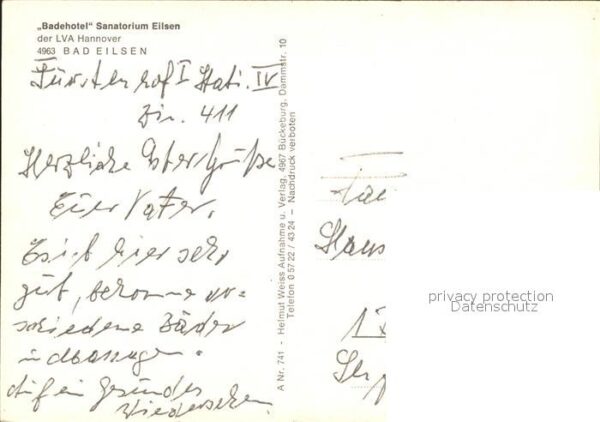 „Badehotel" Sanatorium Eilsen
der LVA Hannover
4963 BAD EILSEN
Fürstenhof I Stati. IV
Zi. 411
Herzliche Ostergrüße
Euer Vater.
Es ist hier sehr
gut, bekomme ver=
schiedene Bäder
und Massagen.
Auf ein gesundes
Wiedersehen.
A Nr. 741 - Helmut Weiss Aufnahme u. Verlag, 4967 Bückeburg, Dammstr. 10
Telefon 0 57 22 / 43 24 – Nachdruck verboten
Fam
Hans
privacy protection
Datenschutz
1